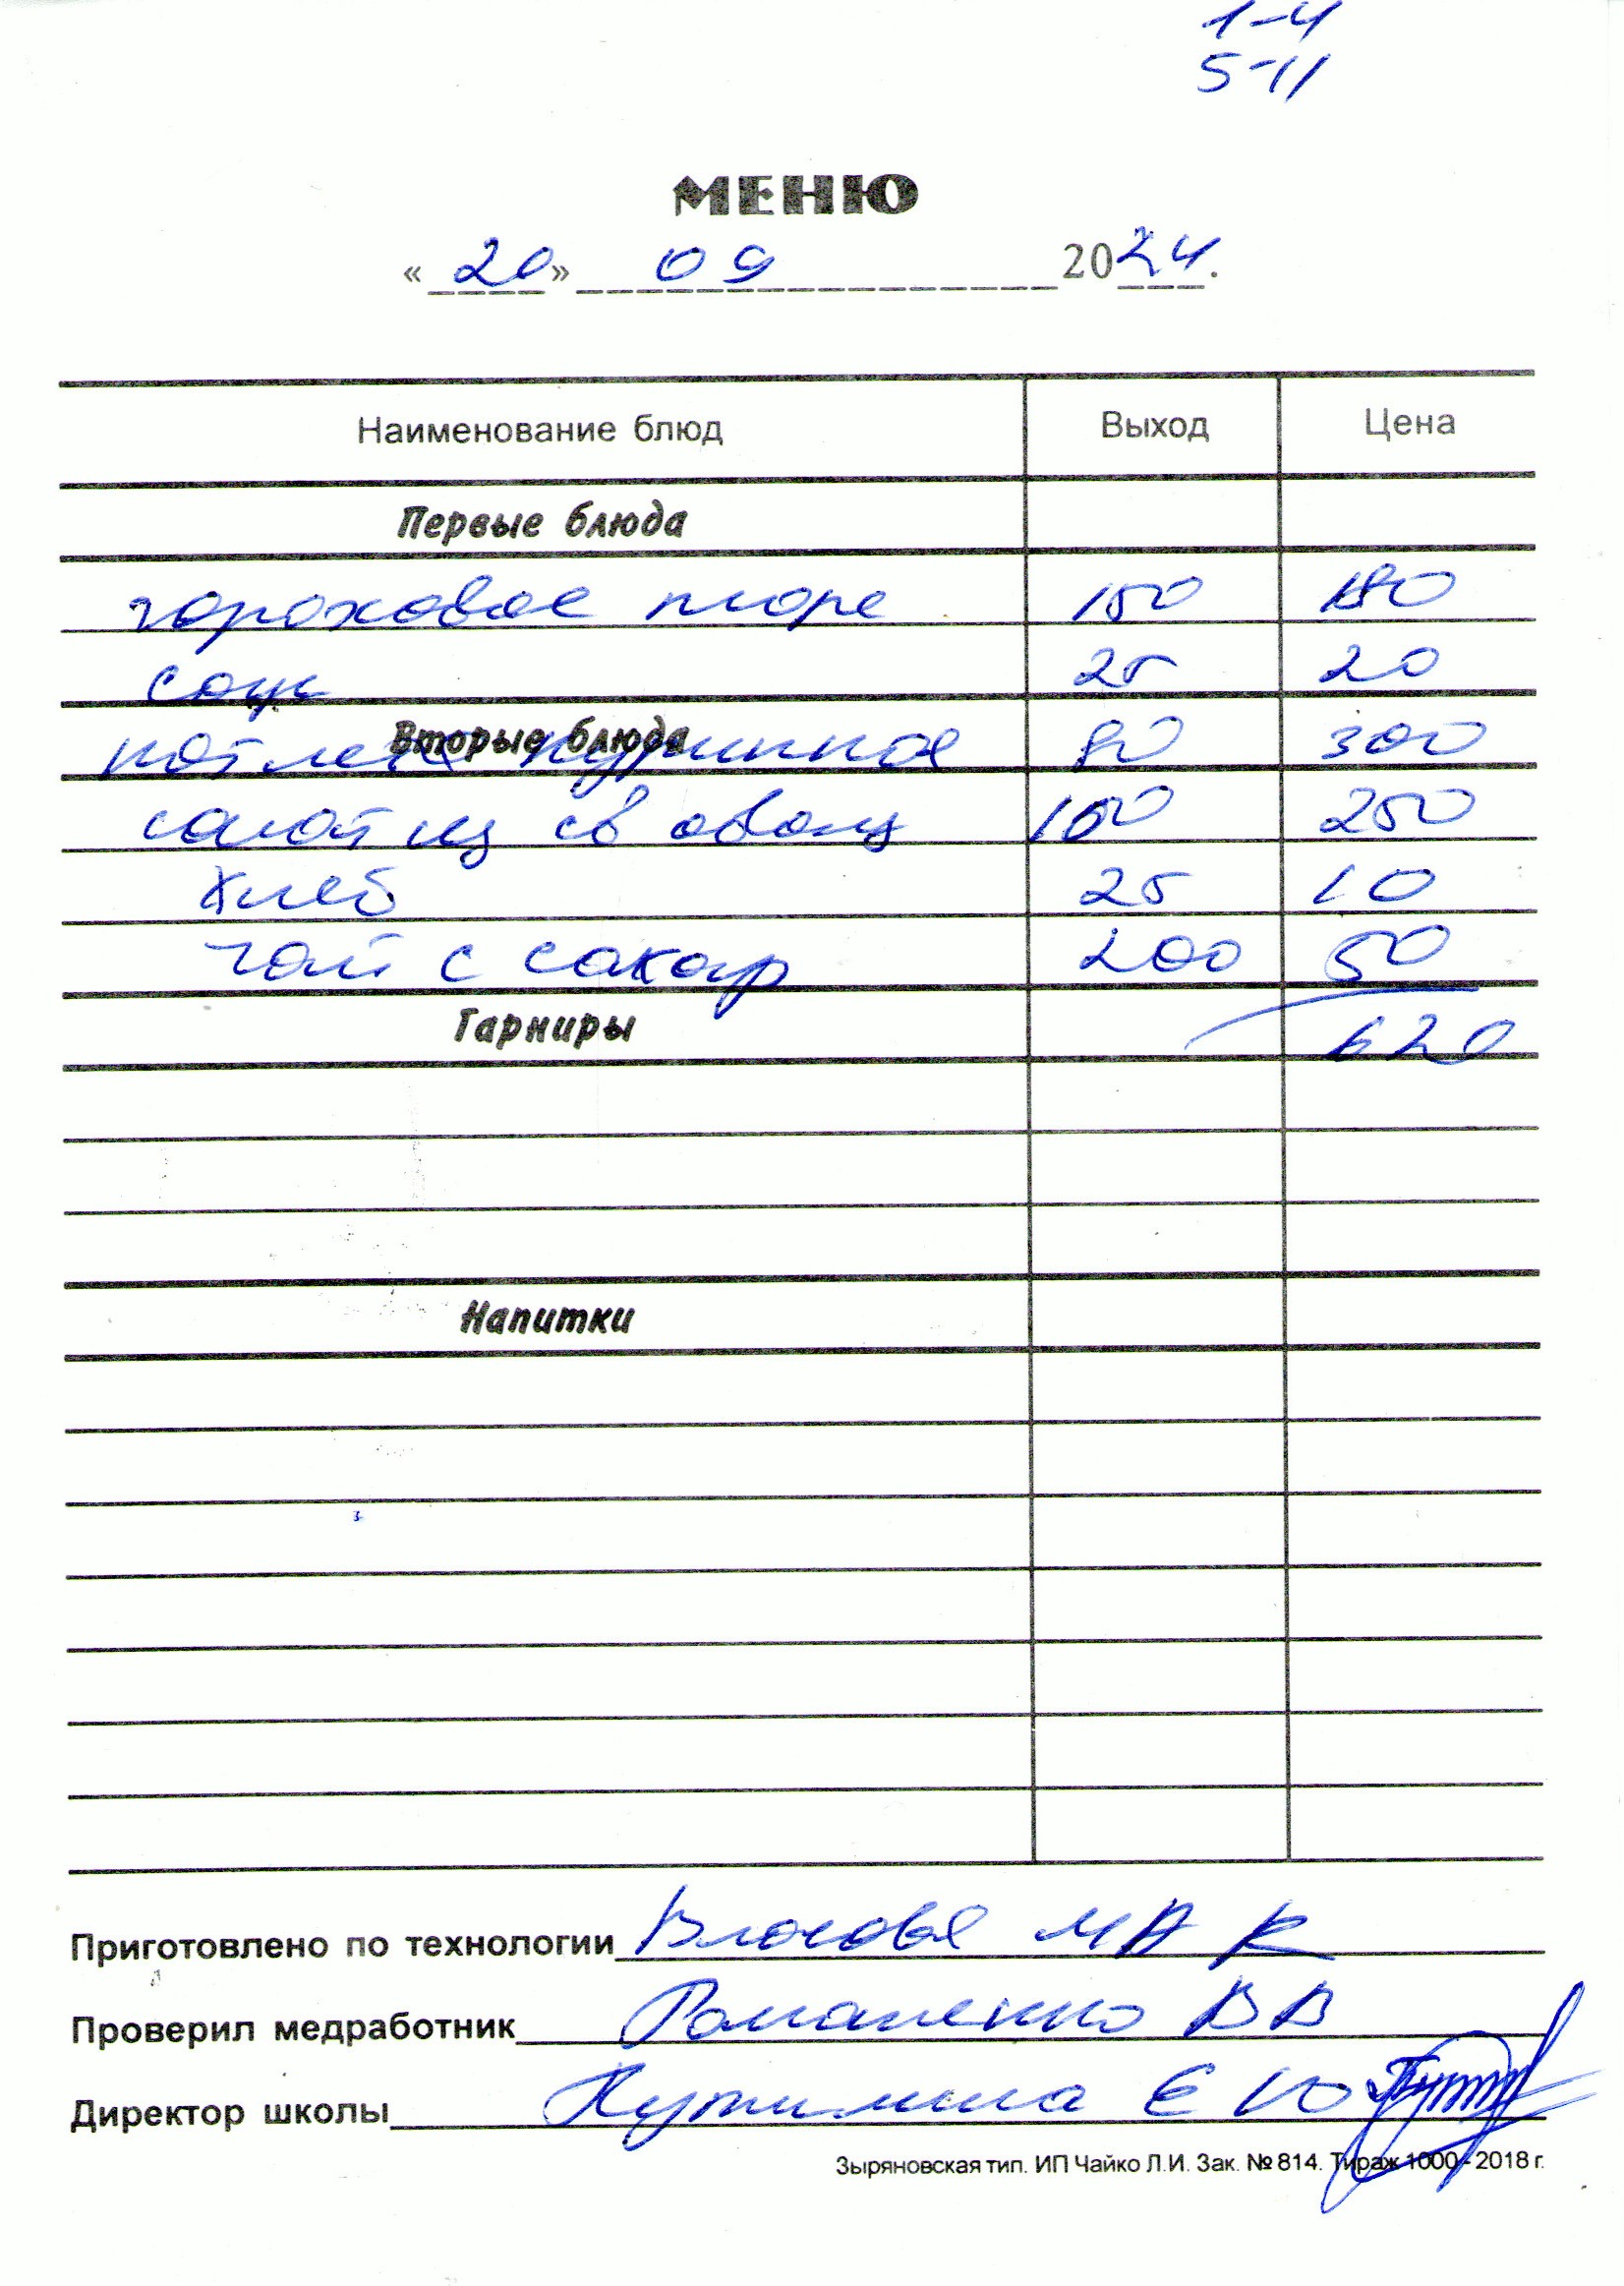 1-4
5-11
МЕНЮ
«20» 09 2024.
Наименование блюд Выход Цена
Первые блюда
гороховое пюре 150 180
соус 25 20
Вторые блюда
котлета куринная 80 300
салат из св овощ 100 250
хлеб 25 10
чай с сахар 200 50
Гарниры 620
Напитки
Приготовлено по технологии Власова МА
Проверил медработник Романенко ВВ
Директор школы Путилина Е Ю
Зыряновская тип. ИП Чайко Л.И. Зак. № 814. Тираж 1000 - 2018 г.